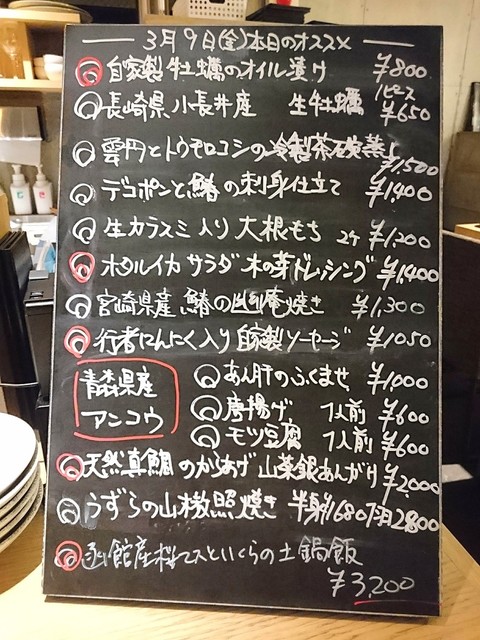 3月9日(金)本日のオススメ
自家製牡蠣のオイル漬け ¥800
長崎県小長井産 生牡蠣 1ピース ¥650
雲丹とトウモロコシの冷製茶碗蒸し ¥1,500
デコポンと鰆の刺身仕立て ¥1400
生カラスミ入り大根もち 2ケ ¥1,200
ホタルイカサラダ 木の芽ドレッシング ¥1,400
宮崎県産 鰆の幽庵焼き ¥1,300
行者にんにく入り自家製ソーセージ ¥1050
青森県産アンコウ
あん肝のふくませ ¥1000
唐揚げ 1人前 ¥600
モツ豆腐 1人前 ¥600
天然真鯛のからあげ 山菜銀あんがけ ¥2,000
うずらの山椒照焼き 半身/1680 1羽2800
函館産桜マスといくらの土鍋飯
¥3,200